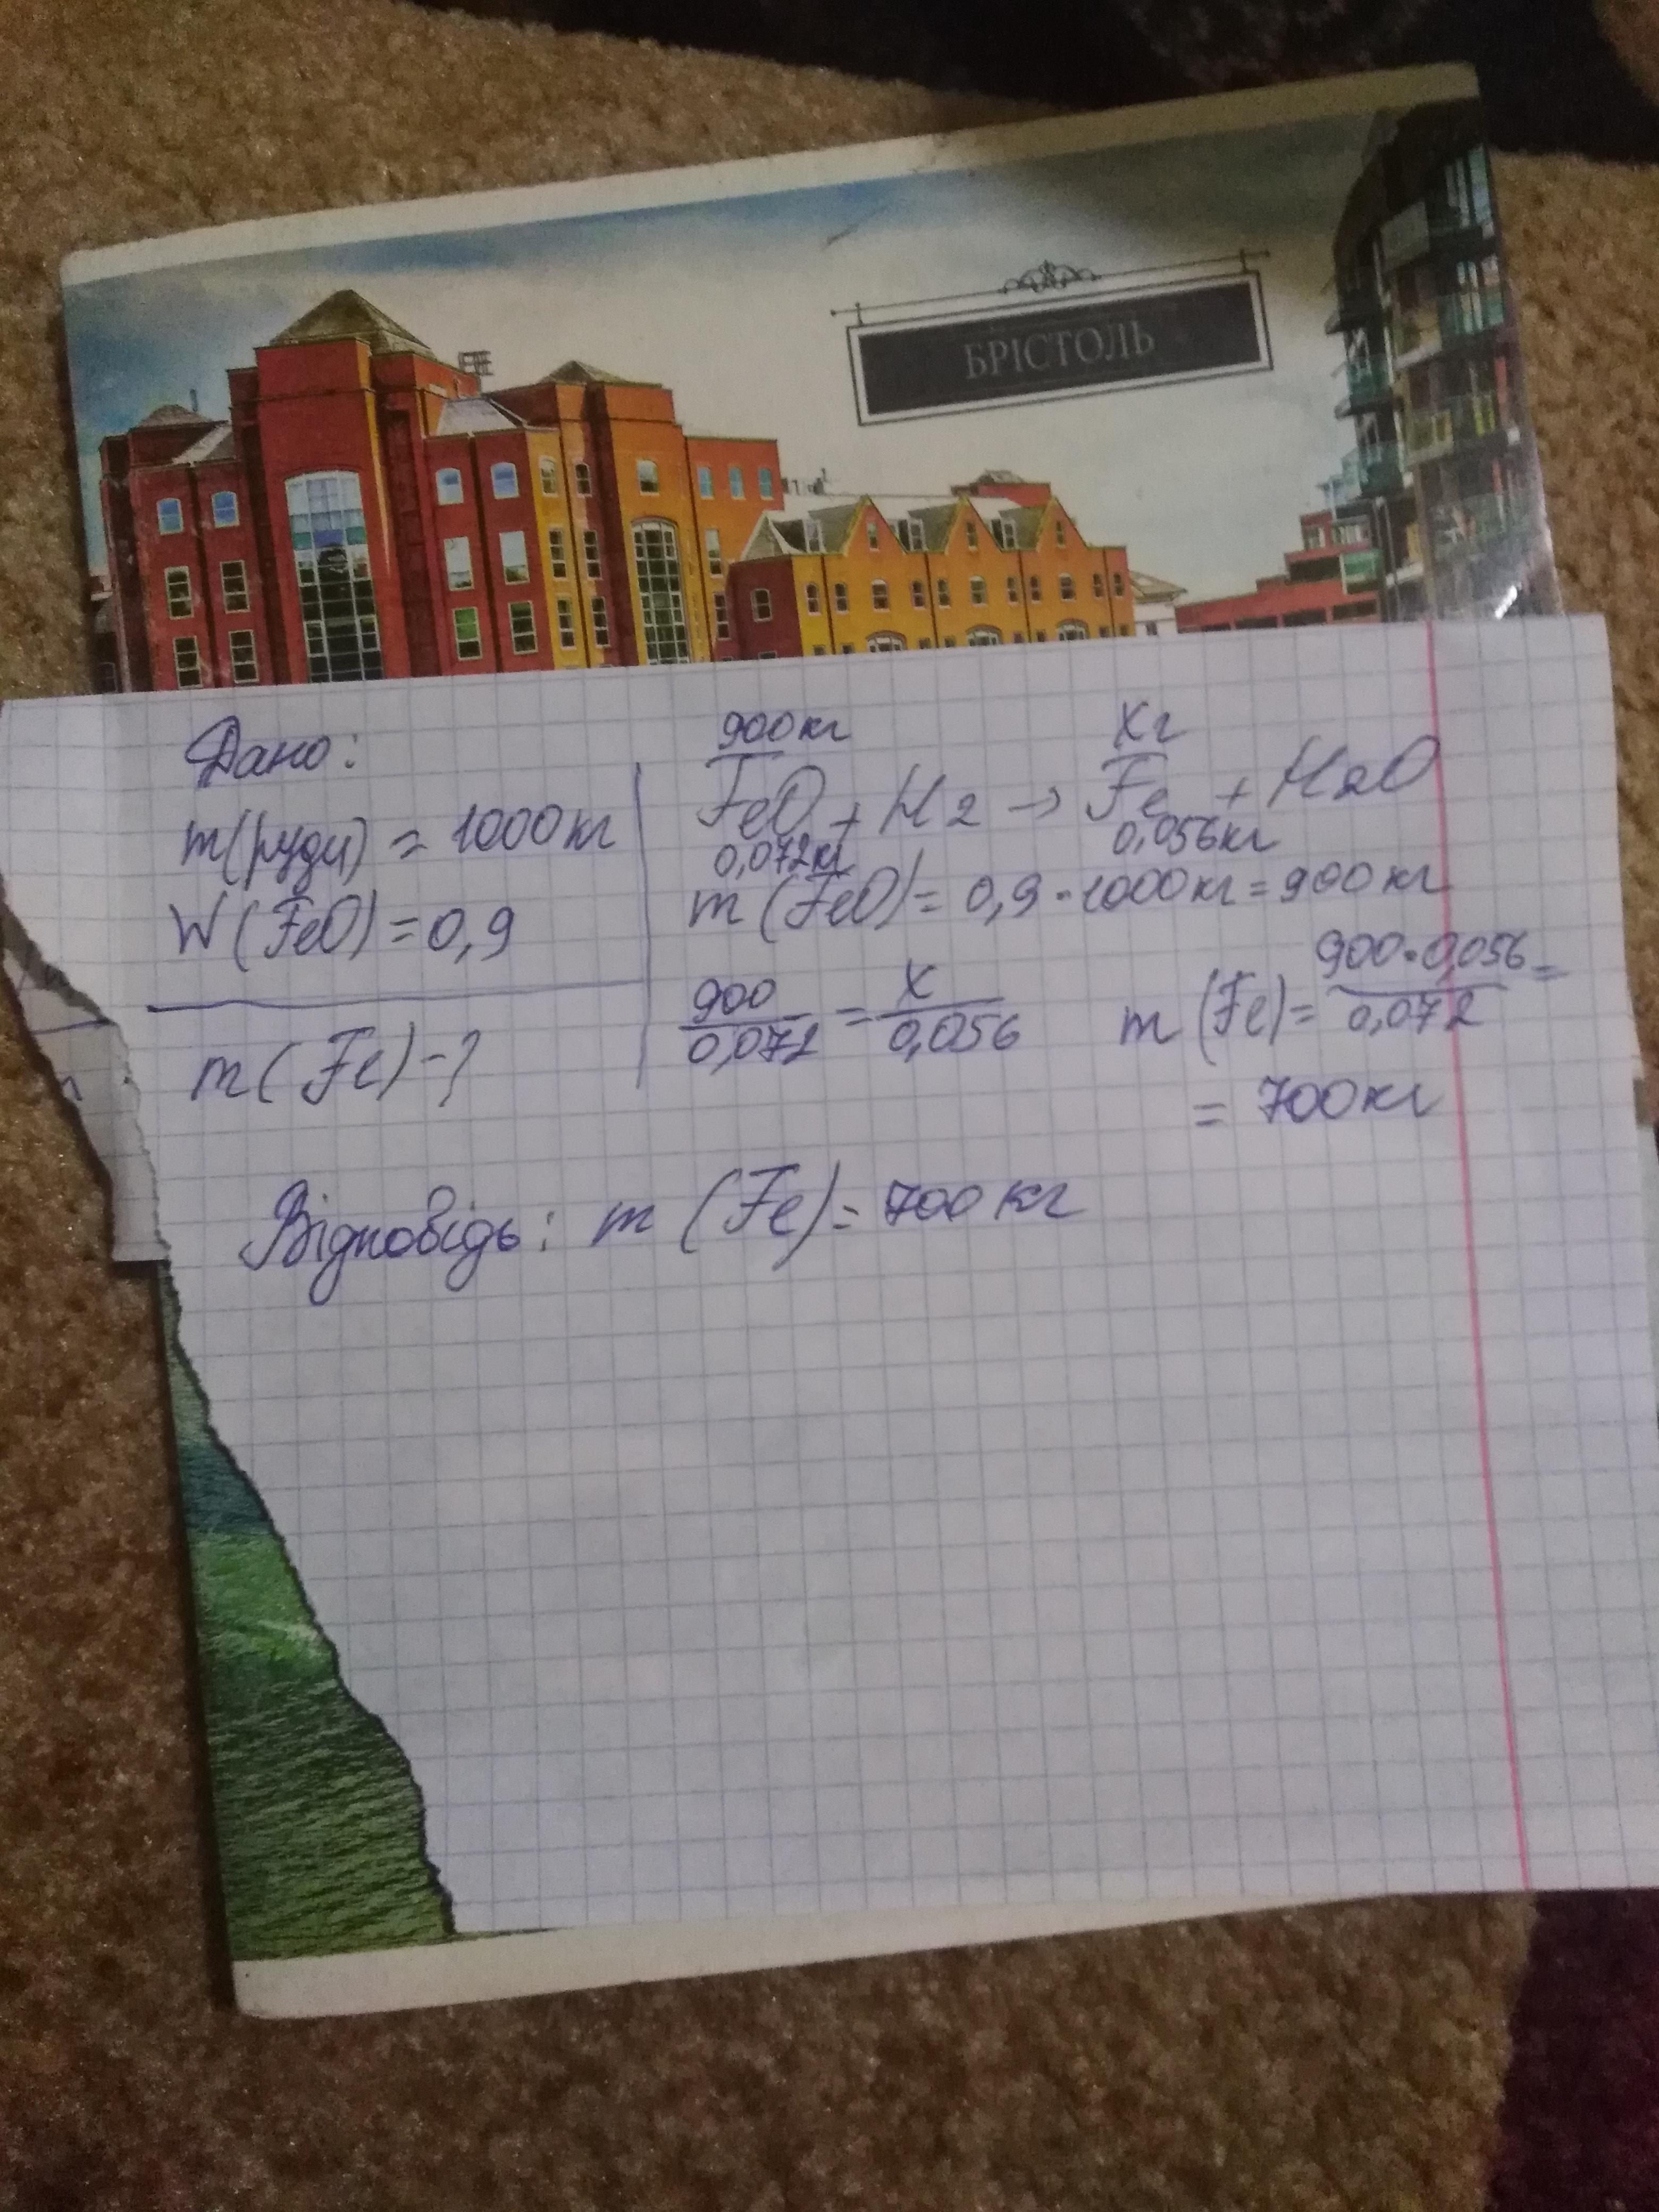 БРІСТОЛЬ
Дано:
m(руди) = 1000кг
W(FeO)=0,9
m(Fe)-?
900кг Xг
FeO + H2 → Fe + H2O
0,072кг 0,056кг
m(FeO)= 0,9·1000кг=900кг
900/0,072 = X/0,056 m(Fe)= 900·0,056/0,072 =
= 700кг
Відповідь: m (Fe)= 700кг